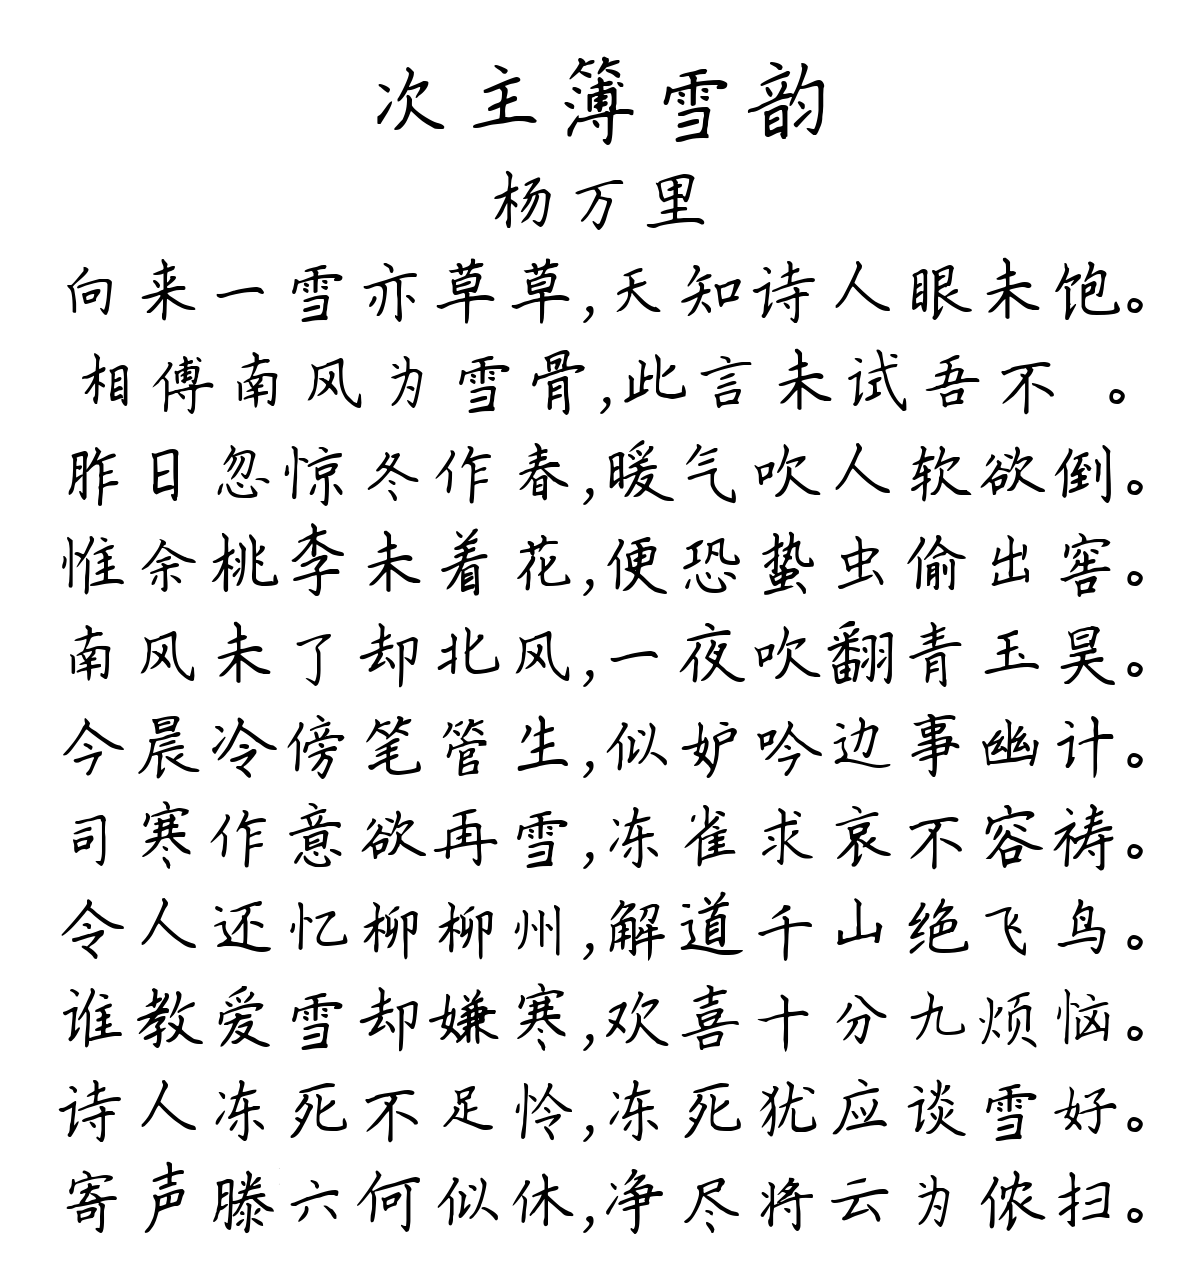 次主簿雪韵
杨万里
向来一雪亦草草,天知诗人眼未饱。
相傅南风为雪骨,此言未试吾不 。
昨日忽惊冬作春,暖气吹人软欲倒。
惟余桃李未着花,便恐蛰虫偷出窖。
南风未了却北风,一夜吹翻青玉昊。
今晨冷傍笔管生,似妒吟边事幽计。
司寒作意欲再雪,冻雀求哀不容祷。
令人还忆柳柳州,解道千山绝飞鸟。
谁教爱雪却嫌寒,欢喜十分九烦恼。
诗人冻死不足怜,冻死犹应谈雪好。
寄声滕六何似休,净尽将云为侬扫。